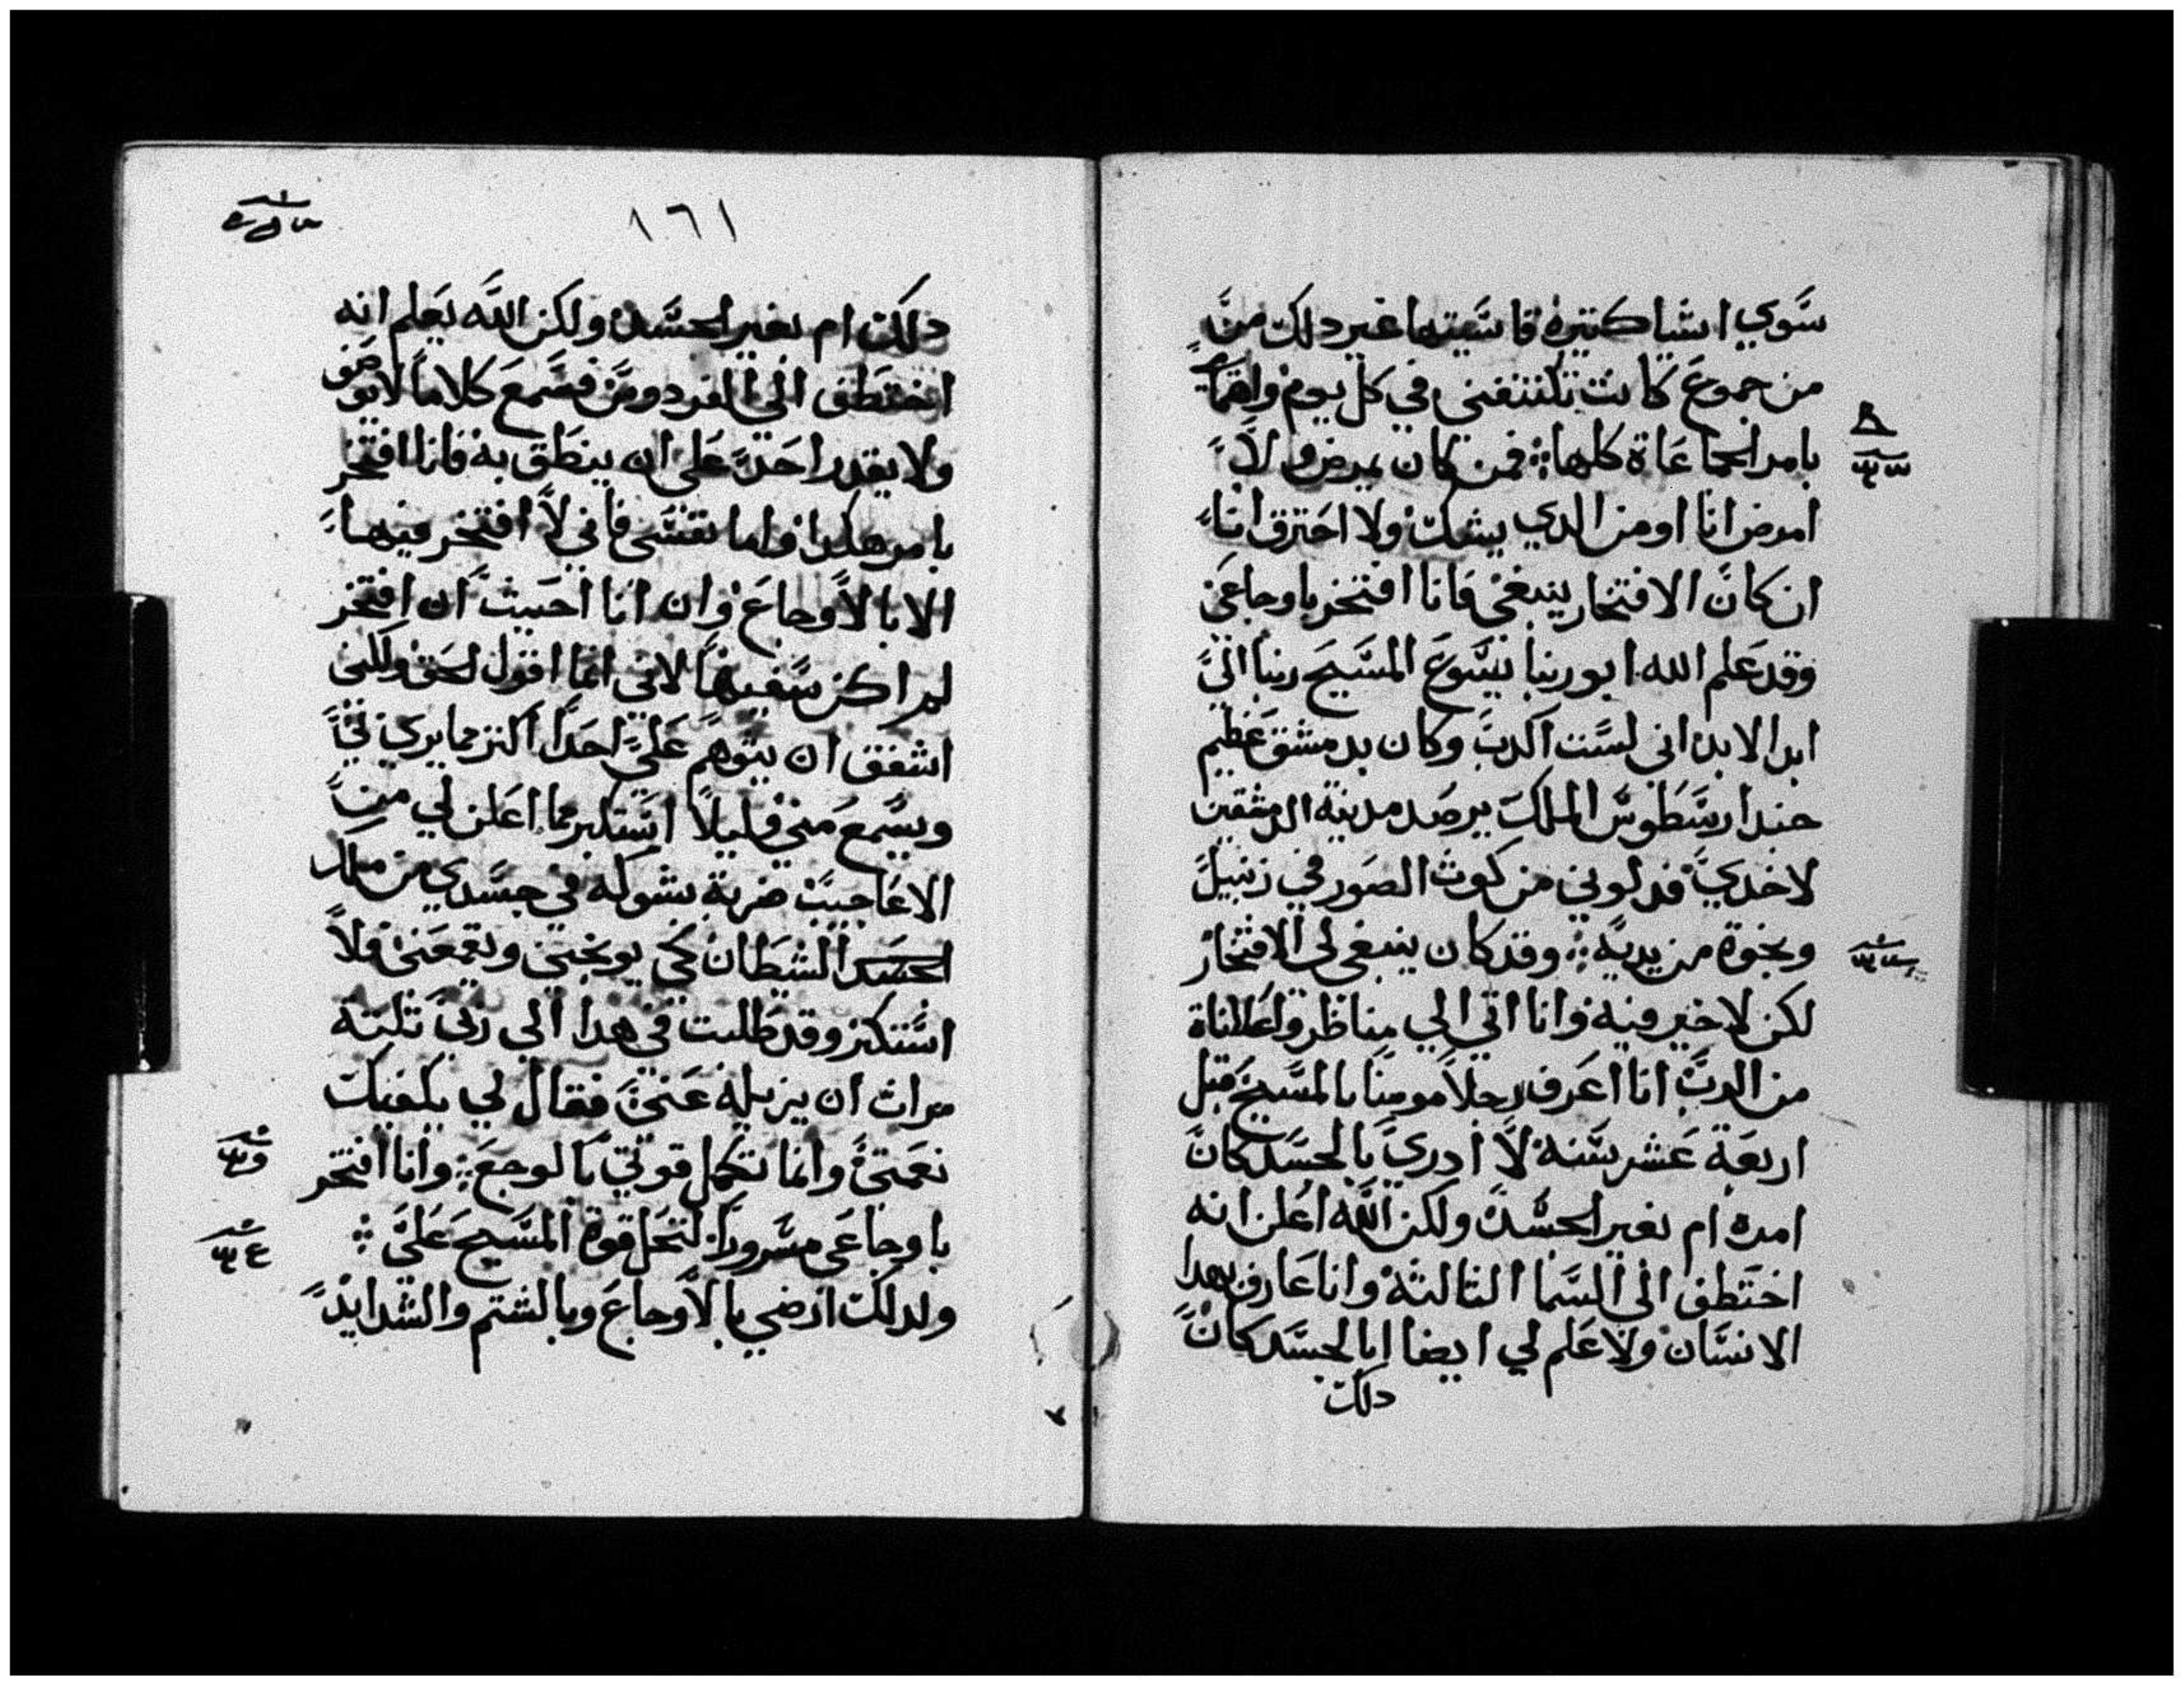 سوي اشيا كتيرة قاسيتها غير دلك من
من جموع كانت تكتنفني في كل يوم واهتمامي
بامر الجماعاة كلها فمن كان يمرض ولا
امرض انا او من الدي يشك ولا احترق انا
ان كان الافتخار ينبغي فانا افتخر باوجاعي
وقد علم الله ابو ربنا يسوع المسيح ربنا الي
ابد الابد اني لست اكدب وكان بدمشق عظيم
جند ارسطوس الملك يرصد مدينة الدمشقين
لاخدي فدلوني من كوت الصور في زنبيل
ونجوة من يديه وقد كان ينبغي لي الافتخار
لكن لا خير فيه وانا اتي الي مناظر واعلاناة
من الرب انا اعرف رجلا مومنا بالمسيح قبل
اربعة عشر سنه لا ادري بالجسد كان
امره ام بغير الجسد ولكن الله اعلن انه
اختطف الي السما التالتة وانا عارف بهدا
الانسان ولا علم لي ايضا ابالجسد كان
دلك
١٦١
دلك ام بغير الجسد ولكن الله يعلم انه
اختطف الي الفردوس فسمع كلاما لا يوصف
ولا يقدر احد علي ان ينطق به فانا افتخر
بامر هكدا فاما نفسي فاني لا افتخر فيها
الا بالاوجاع وان انا احببت ان افتخر
لم اكن سفيها لاني انما اقول الحق ولكني
اشفق ان يتوهم علي احدا اكتر مما يري في
ويسمع مني قليلا استكبر مما اعلن لي من
الاعاجيب ضربة بشوكه في جسدي من ملاك
الجسد الشطان كي يوبخني ويقمعني فلا
استكبر وقد طلبت في هدا الي ربي تلته
مرات ان يزيله عني فقال لي يكفيك
نعمتي وانما تكمل قوتي بالوجع وانا افتخر
باوجاعي مسرورا لتحل قوة المسيح علي
ولدلك ارضي بالاوجاع وبالشتم والشدايد